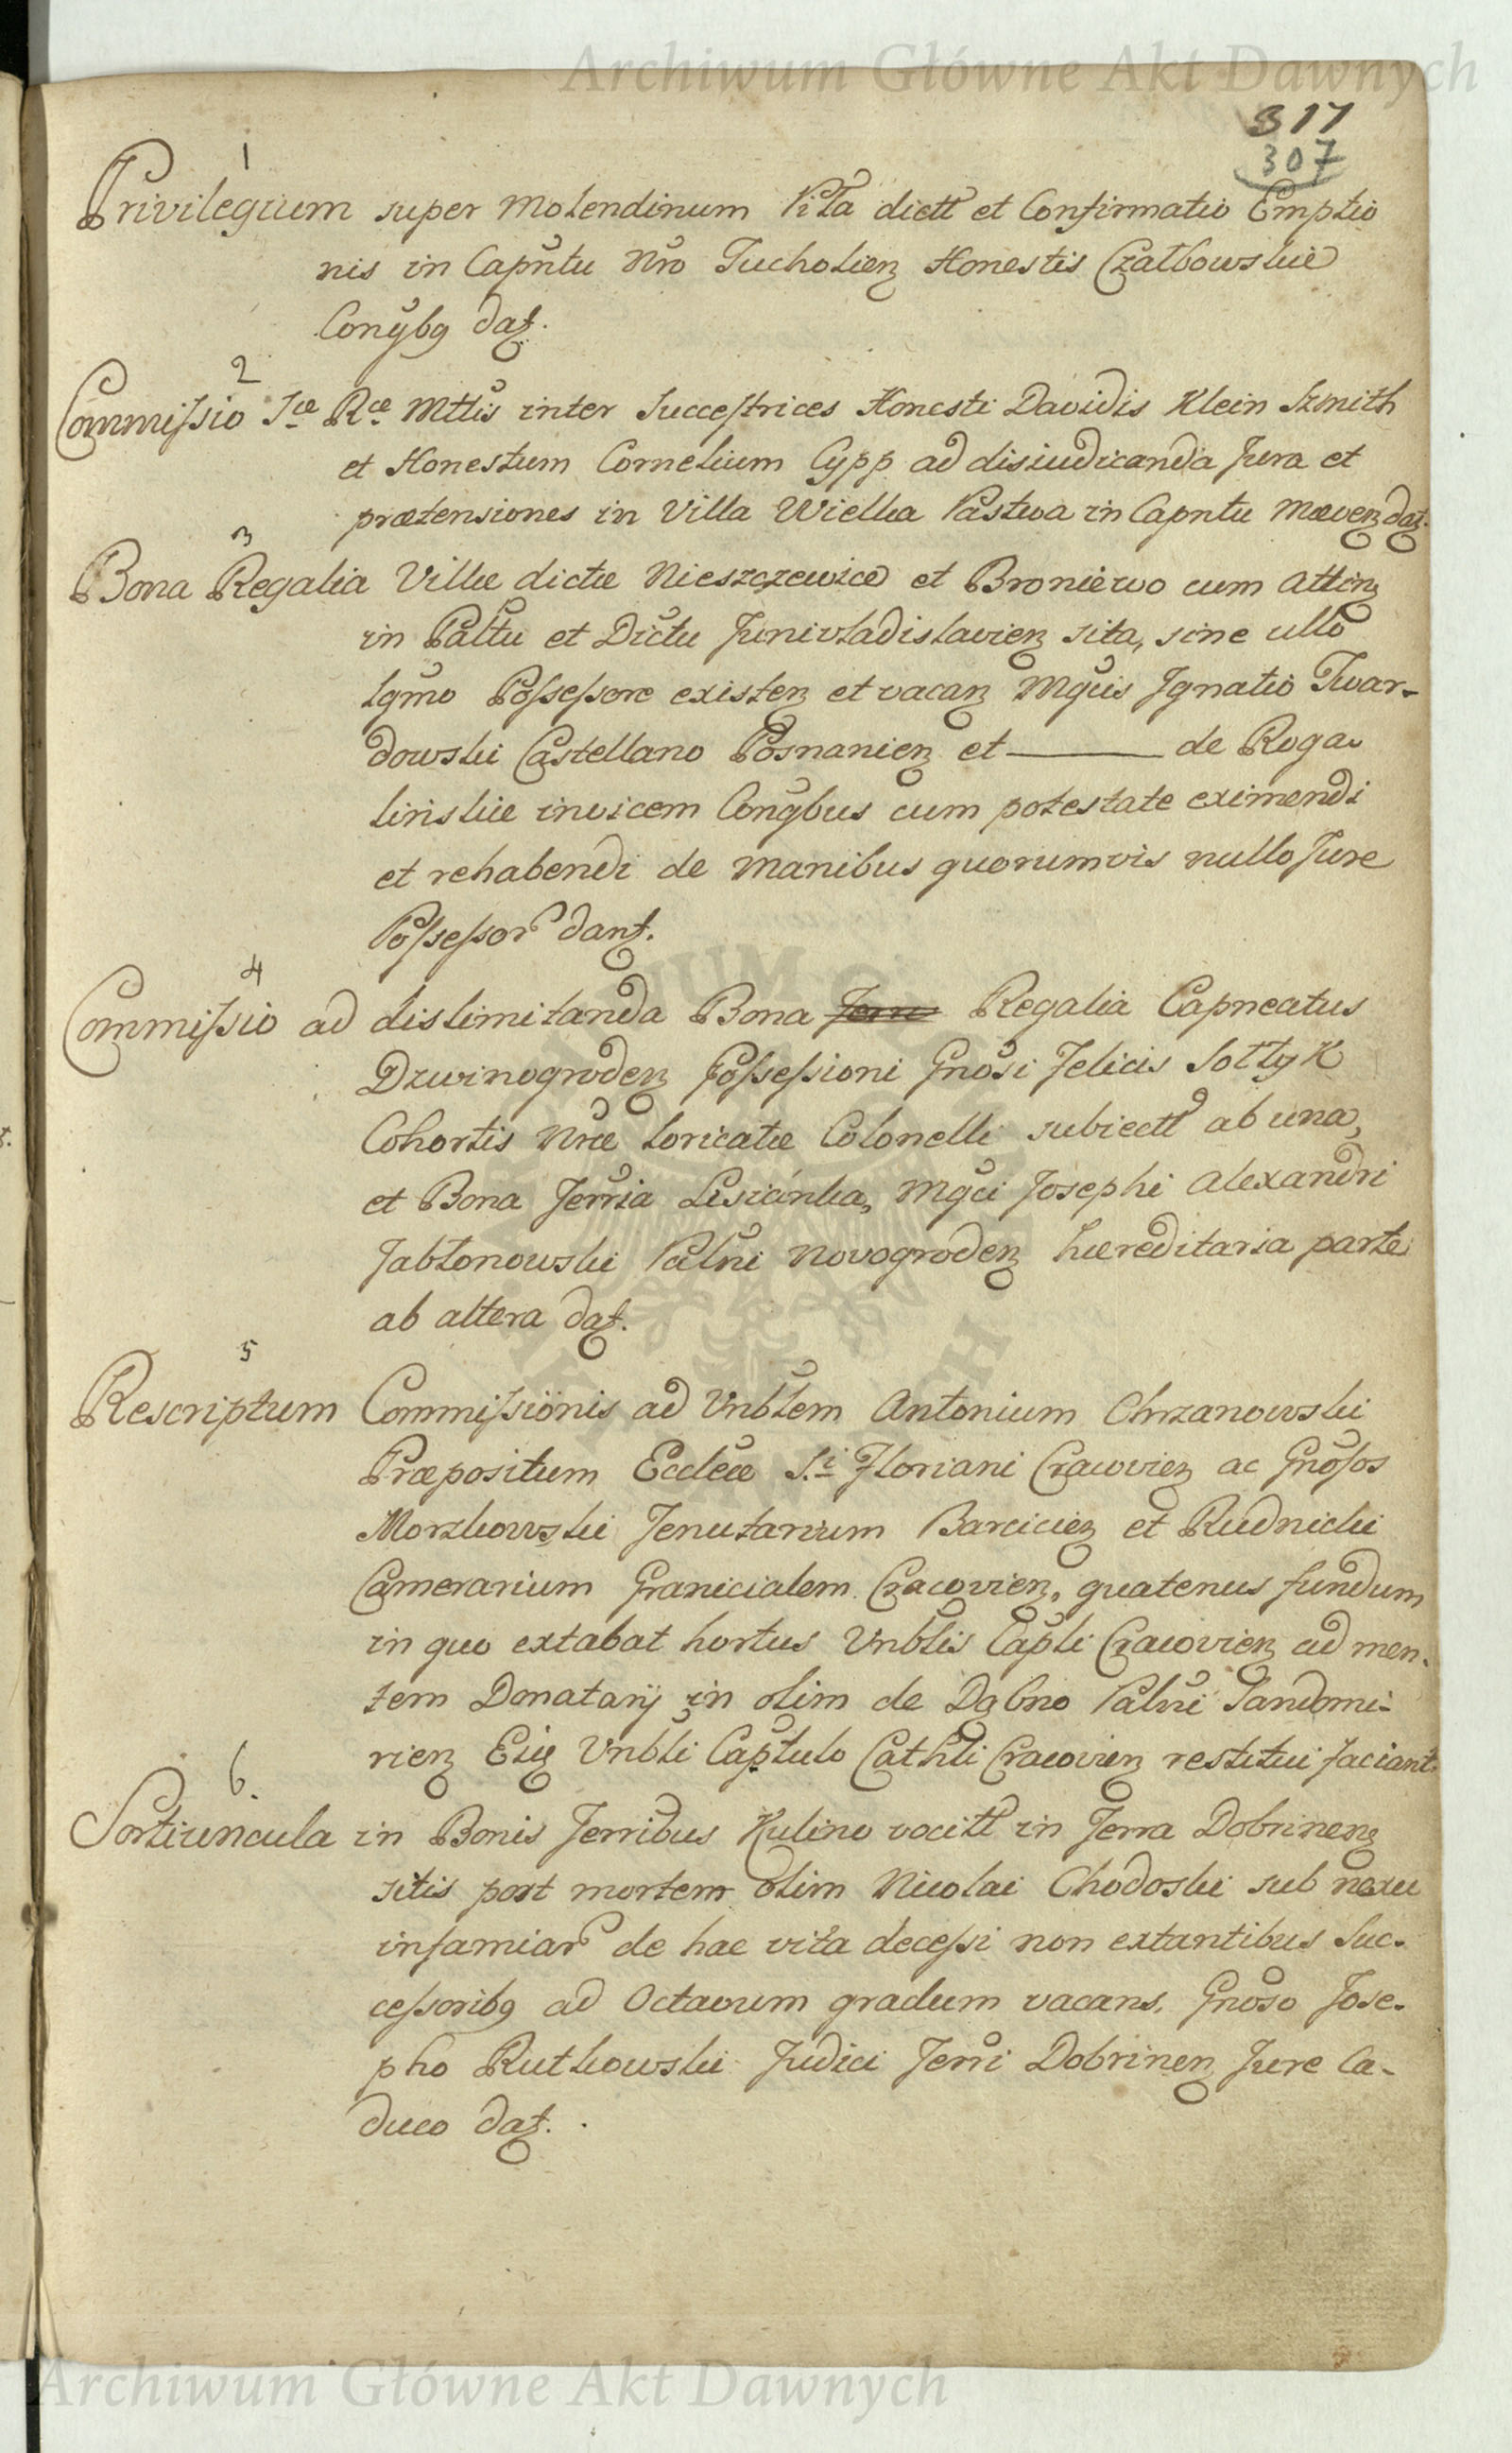 Archiwum Główne Akt Dawnych
317
307
1
Privilegium super Molendinum Piła dictt et Confirmatio Emptio
nis in Capntu Nro Tucholien Honestis Czatbowskie
Conybg dat.
2
Commissio Sæ Ræ Mttis inter Successtrices Honesti Davidis Klein Szmith
et Honestum Cornelium Cypp ad disiudicanda Jura et
prætensiones in Villa Wielka Pastwa in Capntu Mæven dat.
3
Bona Regalia Villæ dictæ Nieszczewice et Broniewo cum attin
in Pałtu et Dictu Junivladislavien sita, sine ullo
lgmo Possessore existen et vacan Mgcis Ignatio Twar-
dowski Castellano Posnanien et ——— de Roga-
linskie invicem Congbus cum potestate eximendi
et rehabendi de manibus quorumvis nullo Jure
Possessor dant.
4
Commissio ad dislimitanda Bona Regalia Capneatus
Dzwinogroden Possessioni Gnosi Felicis Sołtyk
Cohortis Nræ Loricatæ Colonelli subiectt ab una,
et Bona Terria Lisiánka, Mgci Josephi Alexandri
Jabłonowski Palni Novogroden hæreditaria parte
ab altera dat.
5
Rescriptum Commissionis ad Vnblem Antonium Chrzanowski
Præpositum Eccleæ S.i Floriani Cracovien ac Gnosos
Morzkowski Tenutarium Barcicien et Rudnicki
Camerarium Granicialem Cracovien, quatenus fundum
in quo extabat hortus Vnblis Capli Cracovien ad men-
tem Donatarÿ in olim de Dębno Palni Sandomi-
rien Eiq Vnbli Captulo Cathli Cracovien restitui faciant.
6.
Portiuncula in Bonis Terribus Kulino vocitt in Terra Dobrinen
sitis post mortem olim Nicolai Chodoski sub nexu
infamiar de hac vita decessi non extantibus Suc-
cessoribg ad Octavum gradum vacans, Gnoso Jose-
pho Rutkowski Judici Terri Dobrinen Jure Ca-
duco dat.
Archiwum Główne Akt Dawnych